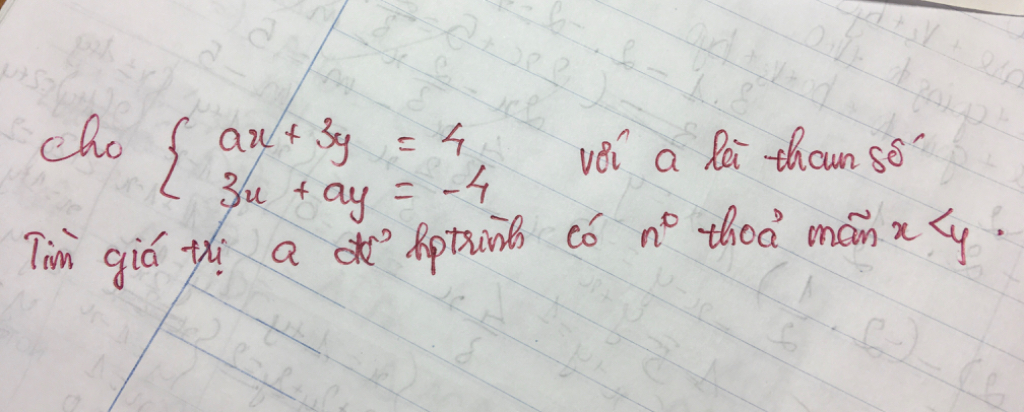 Cho { ax + 3y = 4 với a là tham số
3x + ay = -4
Tìm giá trị a để hptrình có n° thoả mãn x < y.